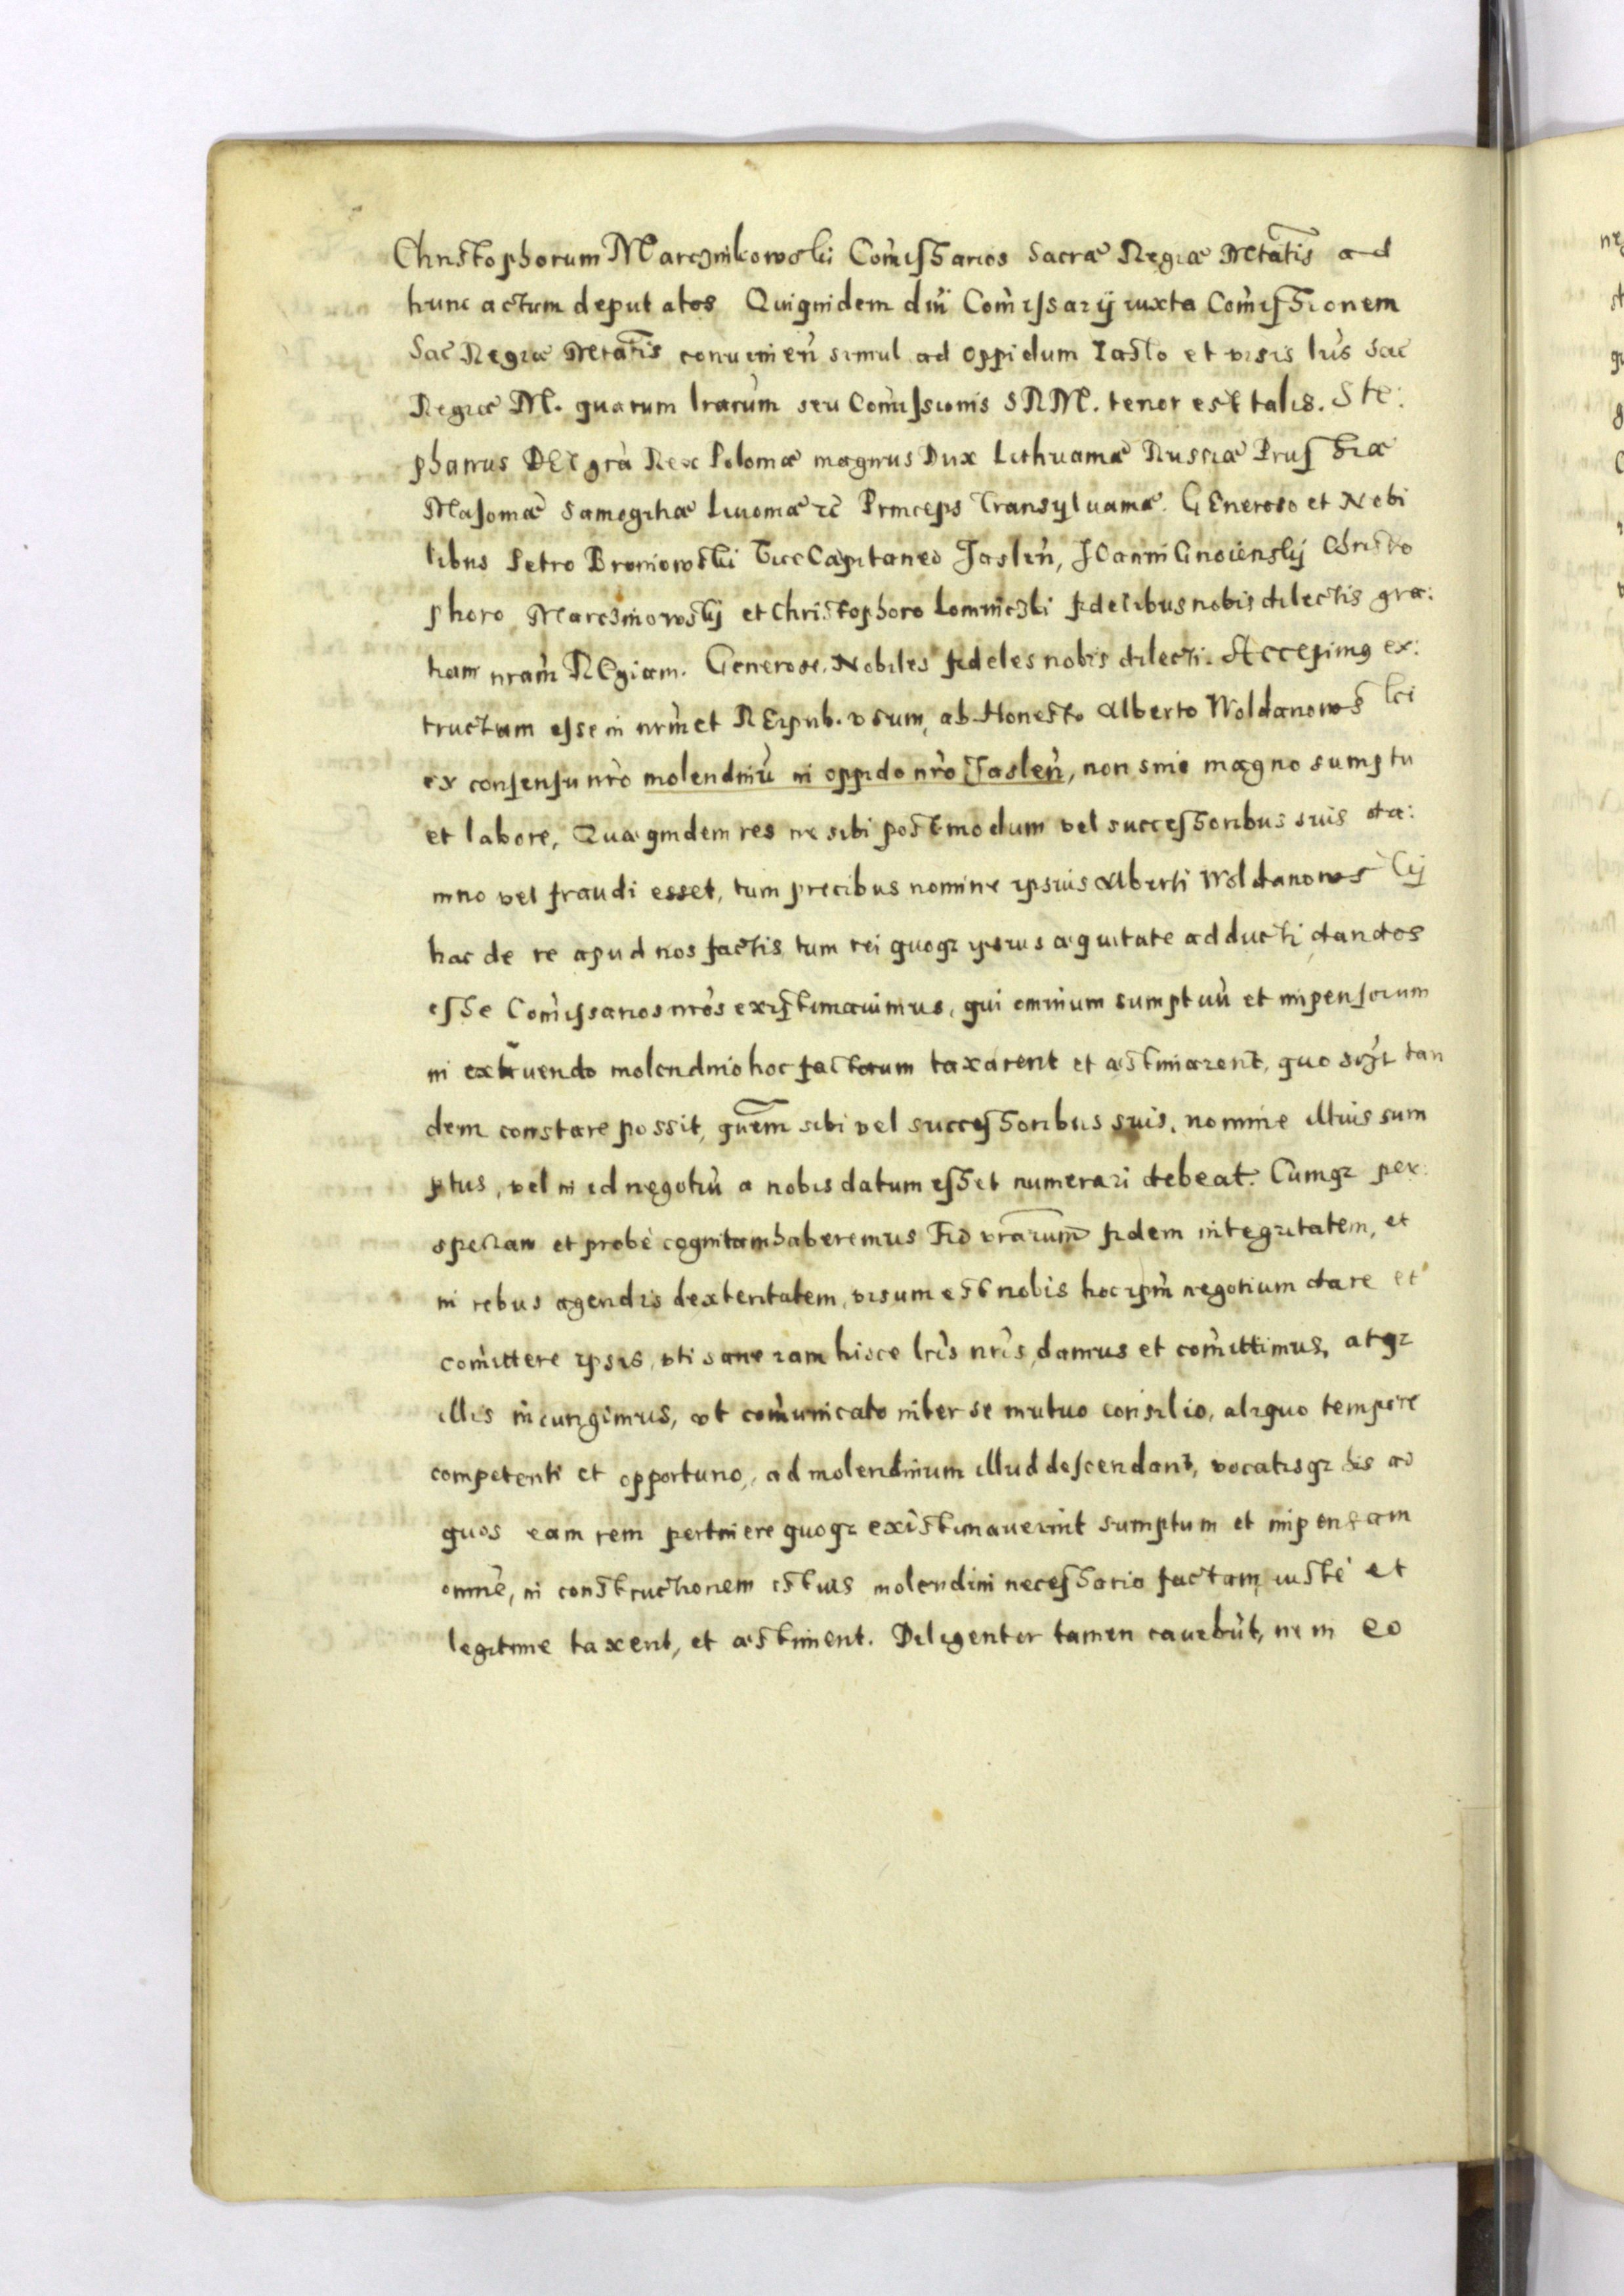 Christophorum Marcznikowski Com̃issarios Sacræ Regiæ Mtatis ad
hunc actum deputatos Quiquidem dni Com̃issarij iuxta Com̃issionem
Sac Regiæ Mtatis convenien̄ simul ad oppidum Iaslo et visis lris Sac
Regiæ M. quarum lrarum seu Com̃issionis SRM. tenor est talis. Ste:
phanus DEI grà Rex Poloniæ magnus Dux Lithuaniæ Russiæ Prussiæ
Masoniæ Samogitiæ Livoniæ zc̄ Princeps Transylvaniæ. GEneroso et Nobi
libus Petro Broniowski ViceCapitaneo Jaslen̄, JOanni Gnoienskij Christo
phoro Marcziniowskij et Christophoro Lomniczki fidelibus nobis dilectis gra:
tiam nram̄ REgiam. Generose. Nobiles fideles nobis dilecti. Accepimus ex:
tructum esse in nrm̄ et REipub. vsum, ab Honesto Alberto Woldanowski
ex consensu nrō molendinū in oppido nrō Jaslen̄, non sine magno sumptu
et labore, Quæ quidem res ne sibi postmodum vel successoribus suis da:
mno vel fraudi esset, tum precibus nomine ipsius Alberti Woldanowskij
hac de re apud nos factis tum rei quoqz ipsius æquitate adducti dandos
esse Com̃issarios nrōs existimavimus, qui omnium sumptuū et impensarum
in extruendo molendino hoc factorum taxarent et æstimarent, quo scire tan
dem constare possit, quem sibi vel successoribus suis, nomine illius sum
ptus, vel in id negotiū a nobis datum esset numerari debeat. Cumqz per:
spectam et probè cognitam haberemus Fid vrarum fidem integritatem, et
in rebus agendis dexteritatem, visum est nobis hoc ipm̄ negotium dare et
com̃ittere ipsis, vti sane iam hisce lris nris, damus et com̃ittimus, atqz
illis iniungimus, vt com̃unicato inter se mutuo consilio, aliquo tempore
competenti et opportuno, ad molendinum illud descendant, vocatisqz his ad
quos eam rem pertinere quoqz existimaverint sumptum et impensam
omnē, in constructionem istius molendini necessario factam, iustè et
legitime taxent, et æstiment. Diligenter tamen cavebūt, ne in eo